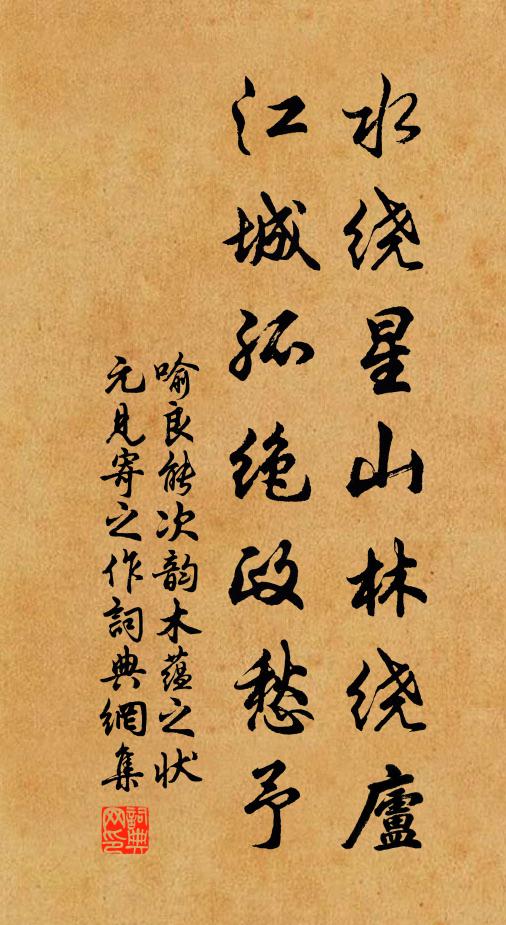 水绕星山林绕廬
江城孤绝政愁予
喻良能次韵木蕴之状
元见寄之作詞典網集
詞典
网印